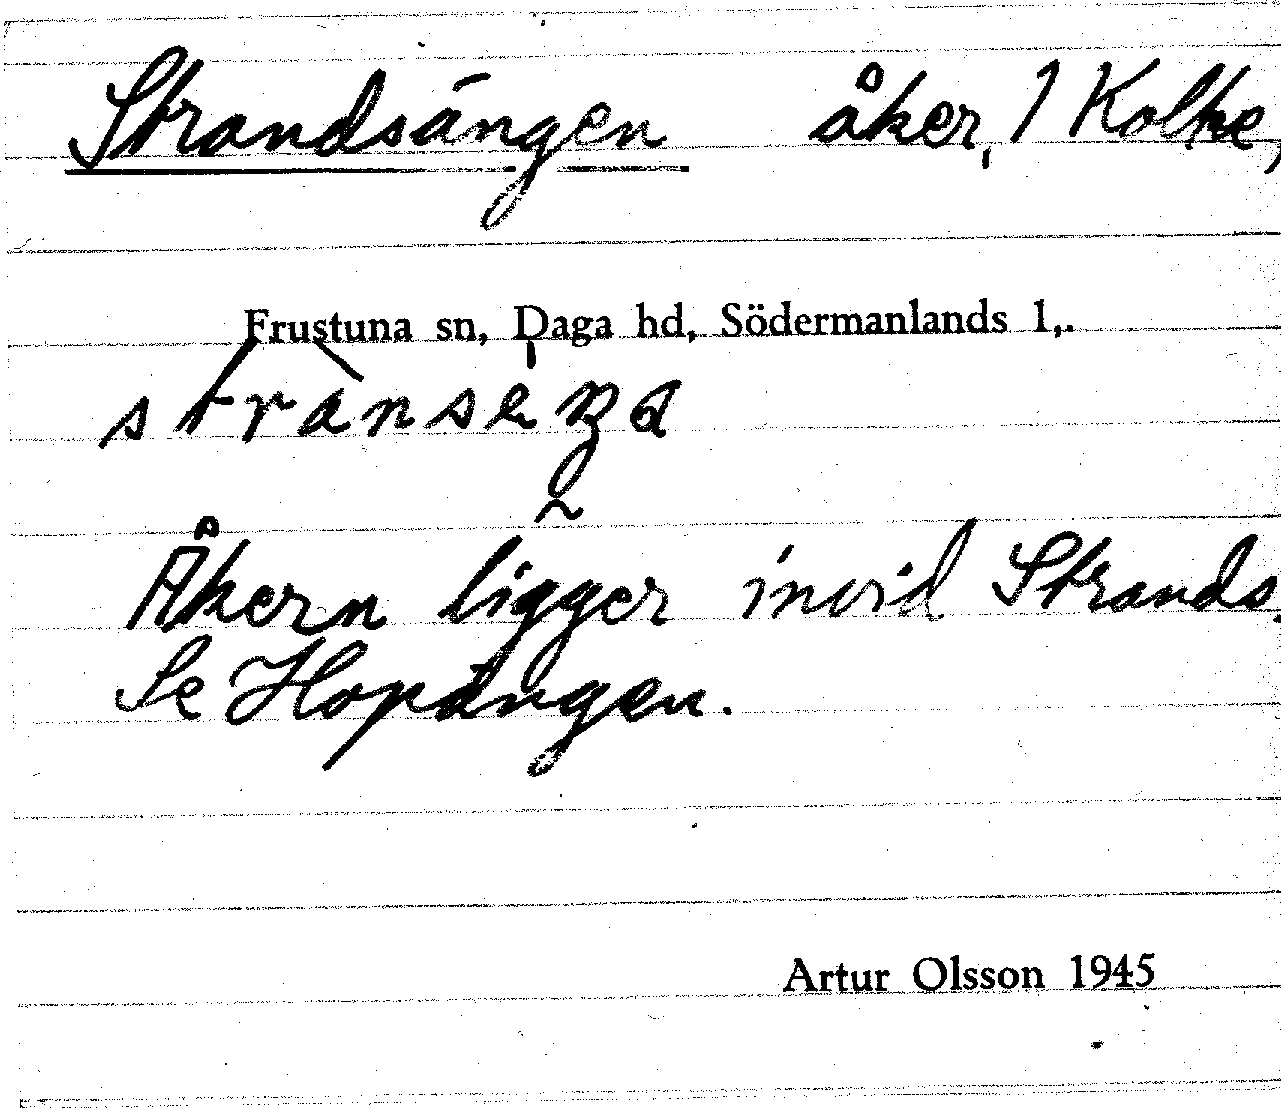 Strandsängen åker, 1 Kolke,
Frustuna sn, Daga hd, Södermanlands l,.
Åkern ligger invid Strands.
Se Hopängen.
Artur Olsson 1945